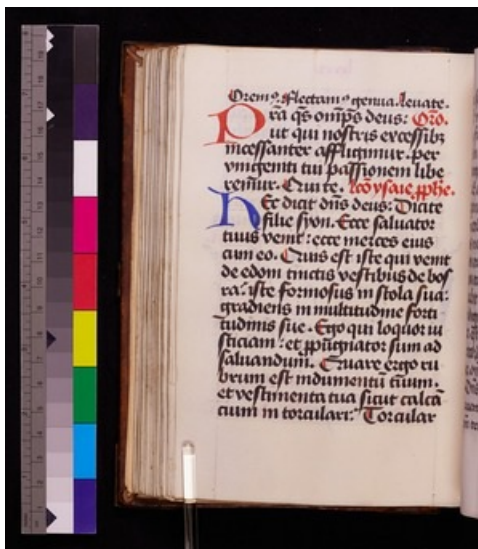 Orem⁹. Flectam⁹ genua. Leuate.
Pra q̄s om̄ps deus: Oro.
ut qui nostris excessibꝫ
incessanter affligimur. per
vnigeniti tui passionem libe
remur. Qui te. lc̄o ysaie ꝓphe.
Hec dicit dn̄s deus: Dicite
filie syon. Ecce saluator
tuus venit: ecce merces eius
cum eo. Quis est iste qui venit
de edom tinctis vestibus de bos
ra: iste formosus in stola sua:
gradiens in multitudine forti
tudinis sue. Ego qui loquor iu
sticiam: et ꝓpugnator sum ad
saluandum. Quare ergo ru
brum est indumentū tuum.
et vestimenta tua sicut calcā
cium in torculari: Torcular